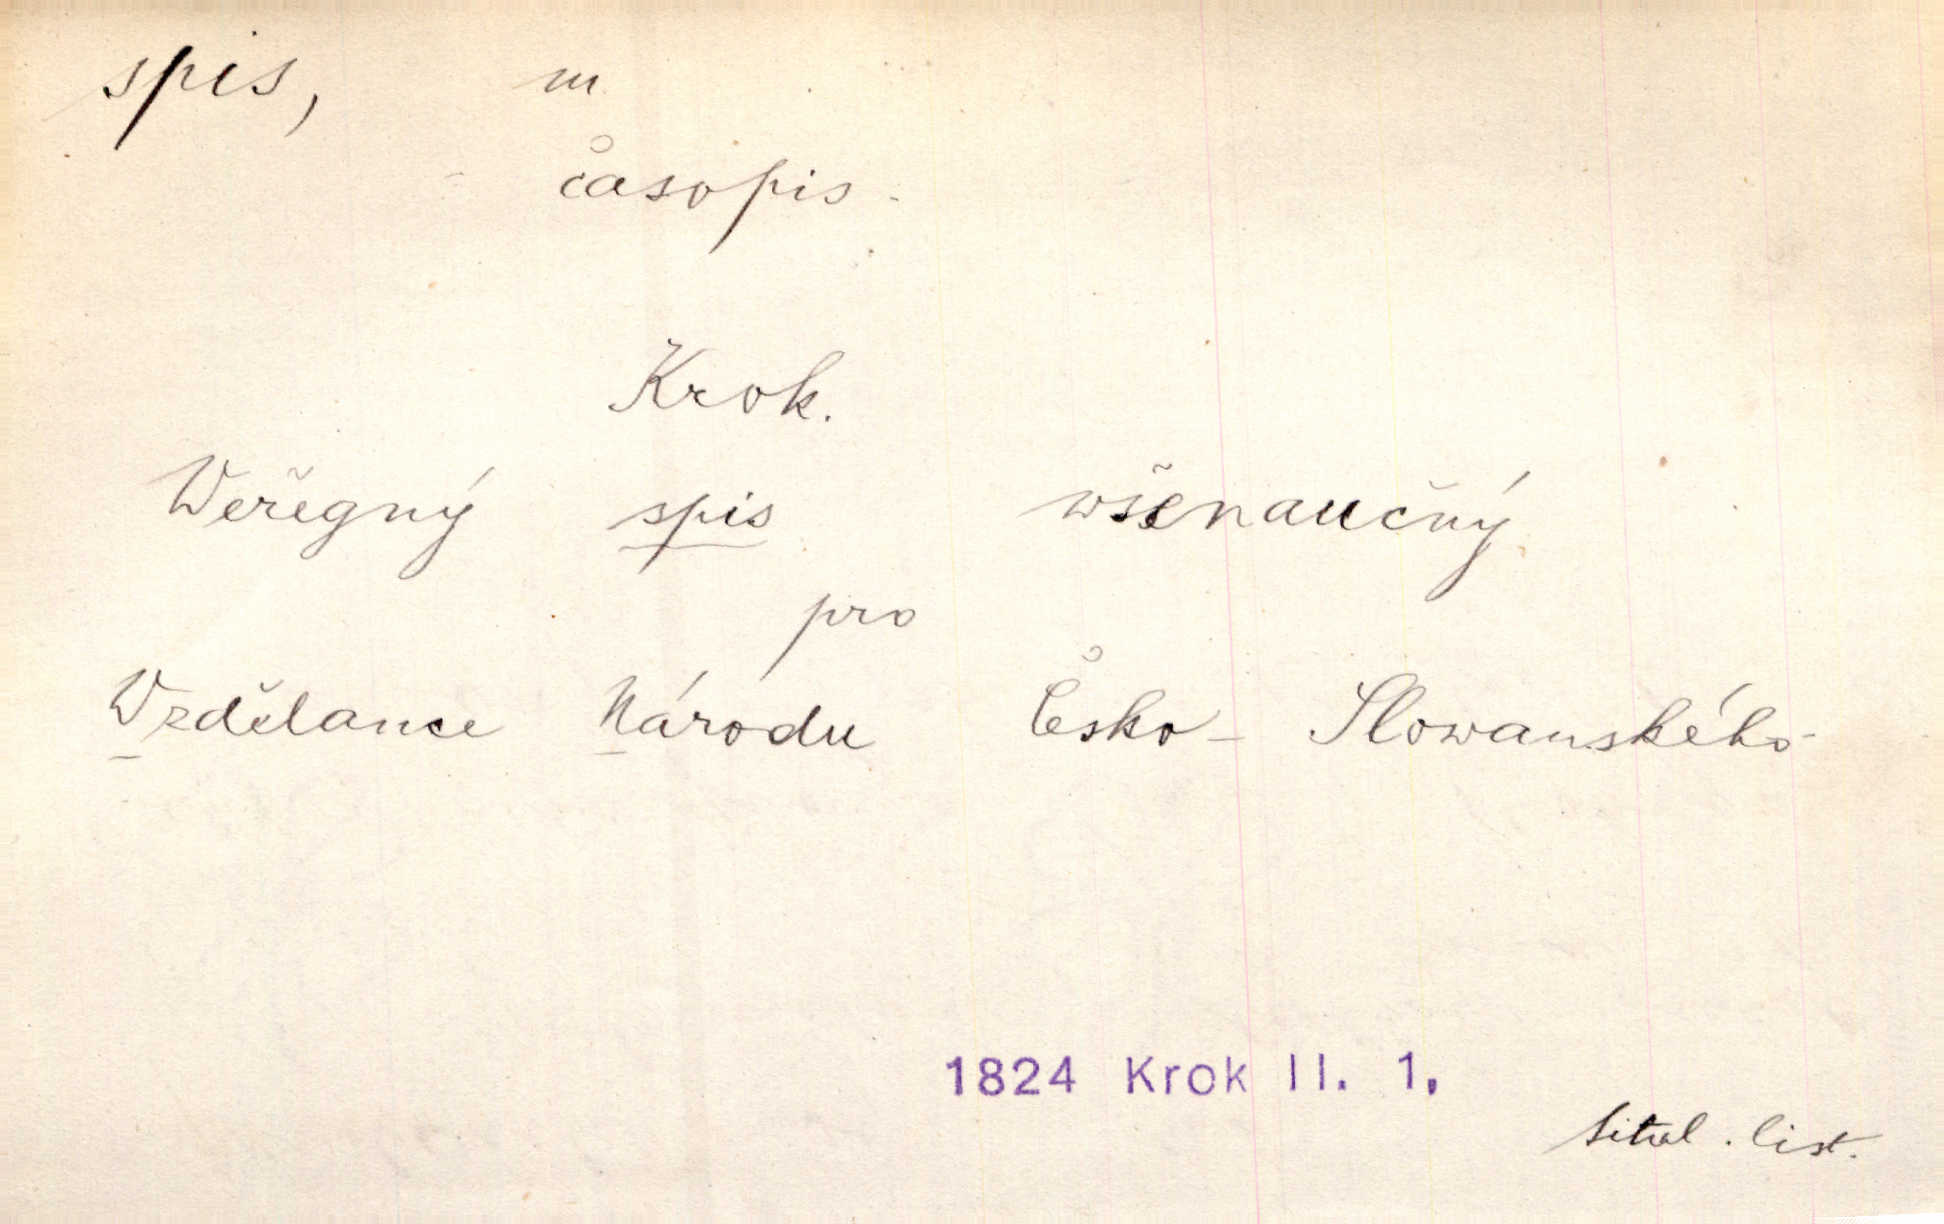 spis, m
časopis.
Krok.
Weřegný spis wšenaučný
pro
Wzdělance Národu Česko-Slowanského
1824 Krok II. 1.
titul. list.